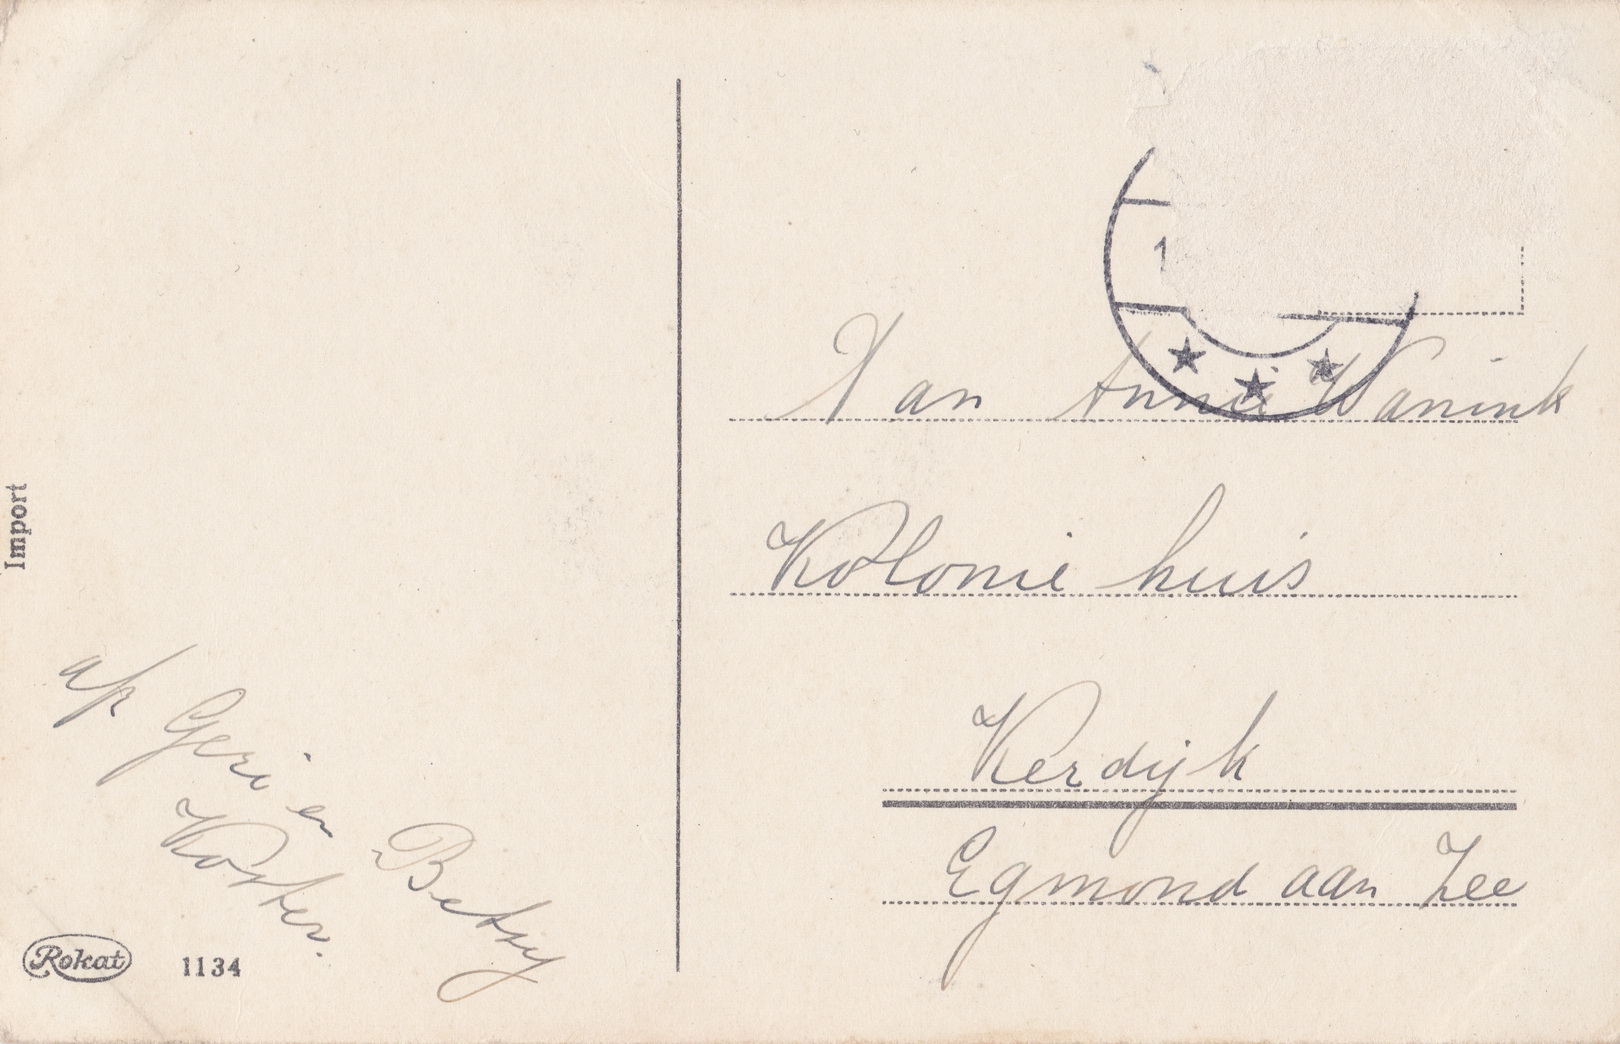 Import
afz Geri en Betsy
Koster.
Rokat
1134
1
Aan Annie Wanink
Kolonie huis
Kerdijk
Egmond aan Zee